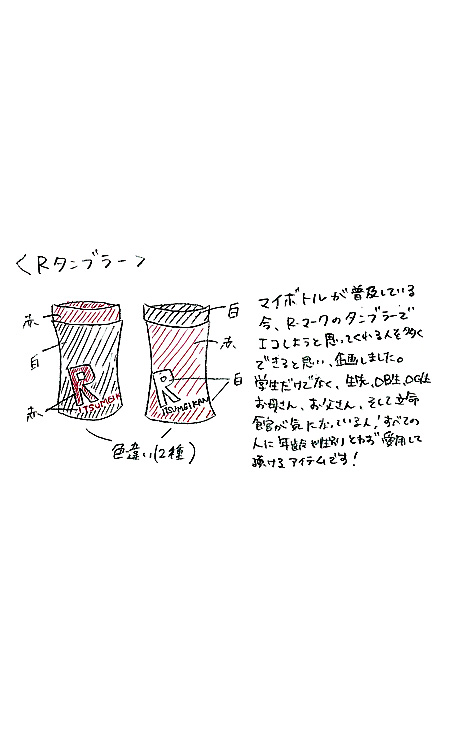 <Rタンブラー>
赤
白
赤
R
ITSUMEIK
白
赤
白
R
ITSUMEIKAN
色違い(2種)
マイボトルが普及している
今、R-マークのタンブラーで
エコしようと思ってくれる人を多く
できると思い、企画しました。
学生だけでなく、生先、OB生、OG生
お母さん、お父さん、そして立命
館が気になっている人!すべての
人に年齢や性別とわず愛用して
頂けるアイテムです!